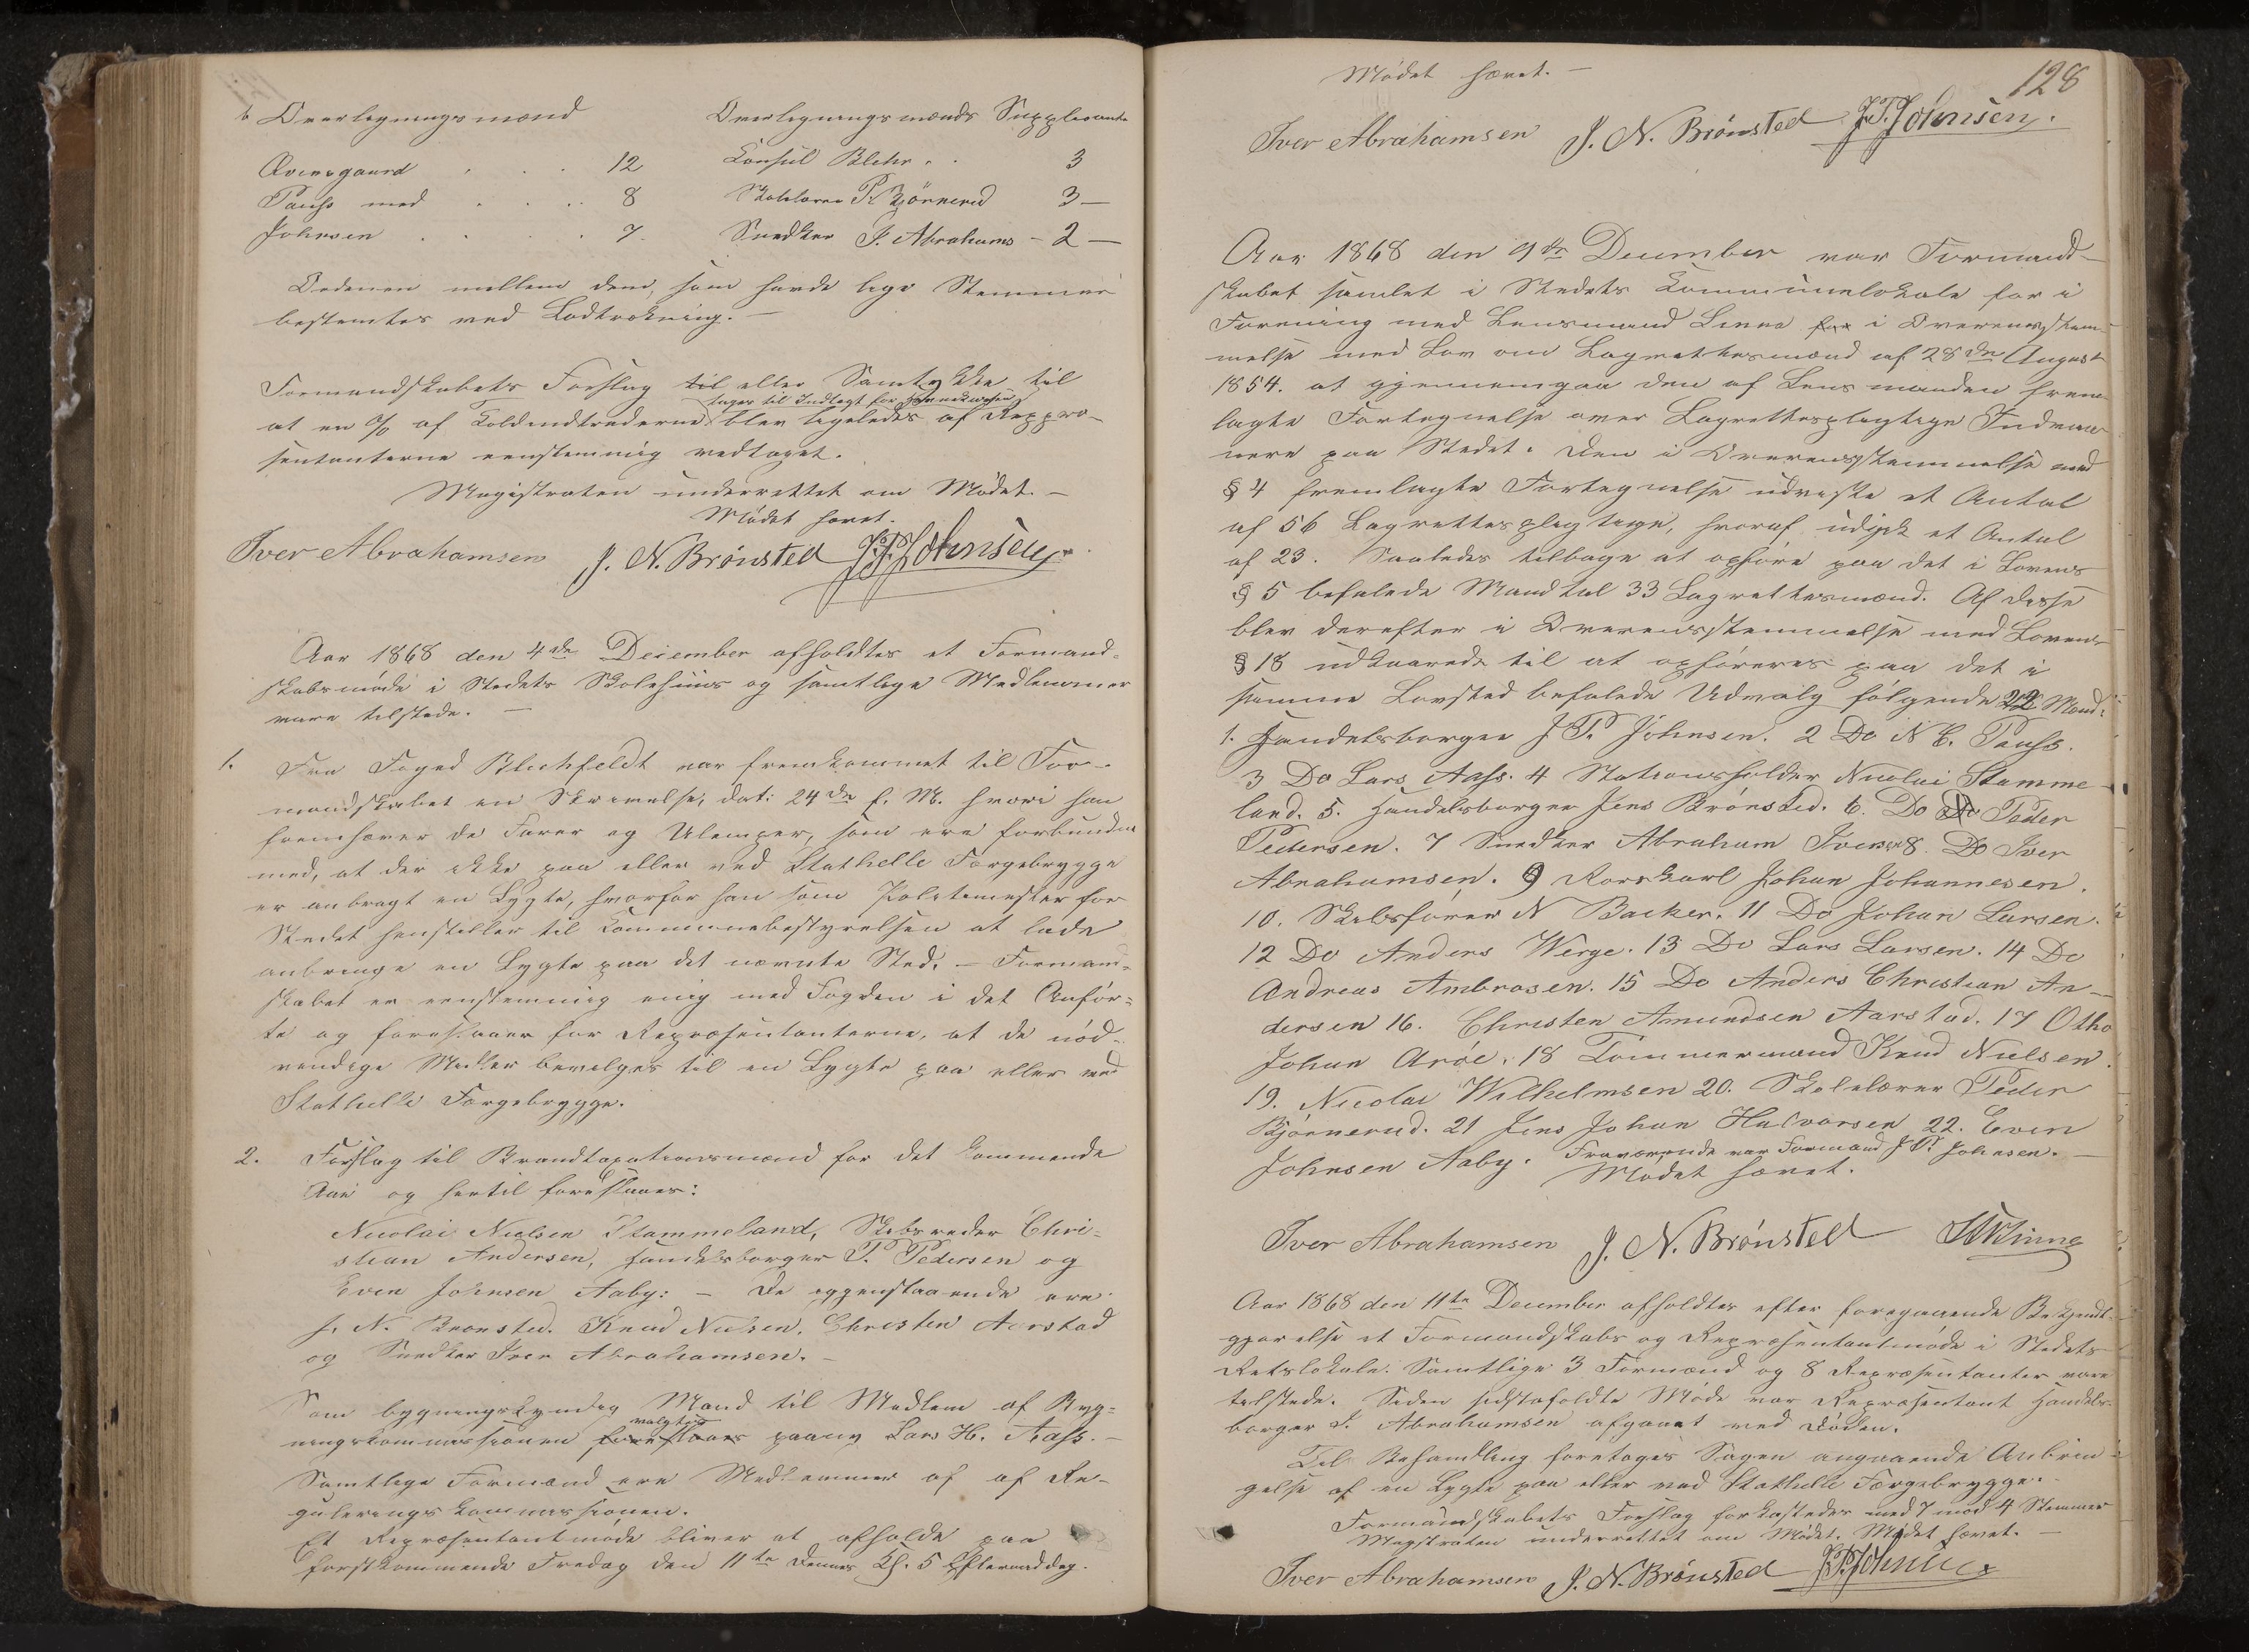 b Overligningsmænd Overligningsmænds Suppleanter
Qvinsgaard 12 Konsul Blehr 3
Pauss med 8 Skolelærer P Bjørnerud 3 —
Johnsen 7 Snedker I. Abrahams - 2 —
Ordenen mellem dem, som havde lige Stemmer
bestemtes ved Lodtrækning. —
Formandskabets Forslag til eller Samtykke til
tages til Indtægt for Havnekassen
at en % af Toldindtræderne blev ligeledes af Reppræ-
sentanterne eenstemmig vedtaget.
Magistraten underrettet om Mødet. —
Mødet hævet.
Iver Abrahamsen J. N. Brønsted J. P. Johnsen
Aar 1868 den 4de December afholdtes et Formand-
skabsmøde i Stedets Skolehuus og samtlige Medlemmer
vare tilstede. —
1. Fra Foged Blichfeldt var fremkommet til For-
mandskabet en Skrivelse, dat: 24de f. M. hvori han
fremhæver de Farer og Ulemper, som ere forbundne
med, at der ikke paa eller ved Stathelle Færgebrygge
er anbragt en Lygte, hvorfor han som Politimester for
Stedet henstiller til Kommunebestyrelsen at lade
anbringe en Lygte paa det nævnte Sted. — Formand-
skabet er eenstemmig enig med Fogden i det Anfør-
te og foreslaaer for Repræsentanterne, at de nød-
vendige Midler bevilges til en Lygte paa eller ved
Stathelle Færgebrygge.
2. Forslag til Brandtaxationsmænd for det kommende
Aar og hertil foreslaaes:
Nicolai Nielsen Stammeland, Skibsreder Chri-
stian Andersen, Handelsborger P. Pedersen og
Even Johnsen Aaby: — De igjenstaaende ere
J. N. Brønsted. Knud Nielsen, Christen Aarstad
og Snedker Iver Abrahamsen. —
Som bygningskyndig Mand til Medlem af Byg-
valgtes
ningskommissionen foreslaaes paany Lars H. Aass. —
Samtlige Formænd ere Medlemmer af af Re-
guleringskommissionen.
Et Repræsentantmøde bliver at afholde paa
førstkommende Fredag den 11te dennes Kl. 5 Eftermiddag.
Mødet hævet. — 128
Iver Abrahamsen J. N. Brønsted J. P. Johnsen.
Aar 1868 den 9de December var Formand-
skabet samlet i Stedets Kommunelokale for i
Forening med Lensmand Linne for i Overensstem-
melse med Lov om Lagrettesmænd af 28de August
1854. at gjennemgaa den af Lensmanden frem-
lagte Fortegnelse over Lagrettespligtige Indvaa-
nere paa Stedet. Den i Overensstemmelse med
§ 4 fremlagte Fortegnelse udviste et Antal
af 56 Lagrettespligtige, hvoraf udgik et Antal
af 23. Saaledes tilbage at opføre paa det i Lovens
§ 5 befalede Mandtal 33 Lagrettesmænd. Af disse
blev derefter i Overensstemmelse med Lovens
§ 18 udkaarede til at opføreres paa det i
samme Lovsted befalede Udvalg følgende 22 Mænd:
1. Handelsborger J P. Johnsen. 2 Do N C. Pauss.
3 Do Lars Aass. 4 Stationsholder Nicolai Stamme-
land. 5. Handelsborger Jens Brønsted. 6. Do Do Peder
Pedersen. 7 Snedker Abraham Iversen 8. Do Iver
Abrahamsen. 9 Rorskarl Johan Johannesen.
10. Skibsfører N Backer. 11 Do Johan Larsen.
12 Do Anders Werge. 13 Do Lars Larsen. 14 Do
Andreas Ambrosen. 15 Do Anders Christian An-
dersen 16. Christen Amundsen Aarstad. 17 Otho
Johan Arøe. 18 Tømmermand Knud Nielsen.
19. Nicolai Wilhelmsen 20. Skolelærer Peder
Bjørnerud. 21 Jens Johan Halvorsen 22. Even
Johnsen Aaby. Fraværende var Formand J P. Johnsen. —
Mødet hævet.
Iver Abrahamsen J. N. Brønsted
Aar 1868 den 11te December afholdtes efter foregaaende Bekjendt-
gjørelse et Formandskabs og Repræsentantmøde i Stedets
Retslokale. Samtlige 3 Formænd og 8 Repræsentanter vare
tilstede. Siden sidstafholdte Møde var Repræsentant Handels-
borger I. Abrahamsen afgaaet ved Døden.
Til Behandling foretoges Sagen angaaende Anbrin-
gelse af en Lygte paa eller ved Stathelle Færgebrygge.
Formandskabets Forslag forkastedes med 7 mod 4 Stemmer
Magistraten underrettet om Mødet. Mødet hævet. —
Iver Abrahamsen J. N. Brønsted J. P. Johnsen